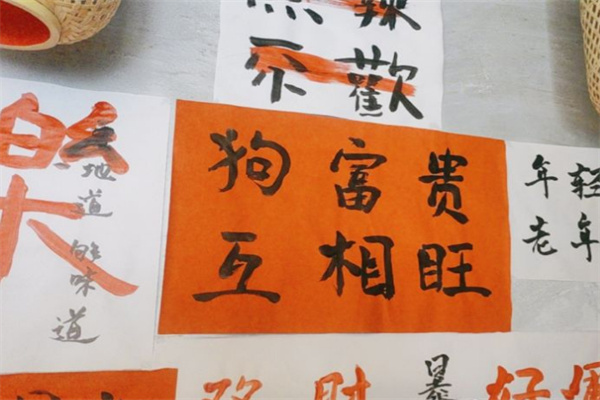 辣
不歡
地道的味道
狗富贵
互相旺
年轻
老年
财
暴
好